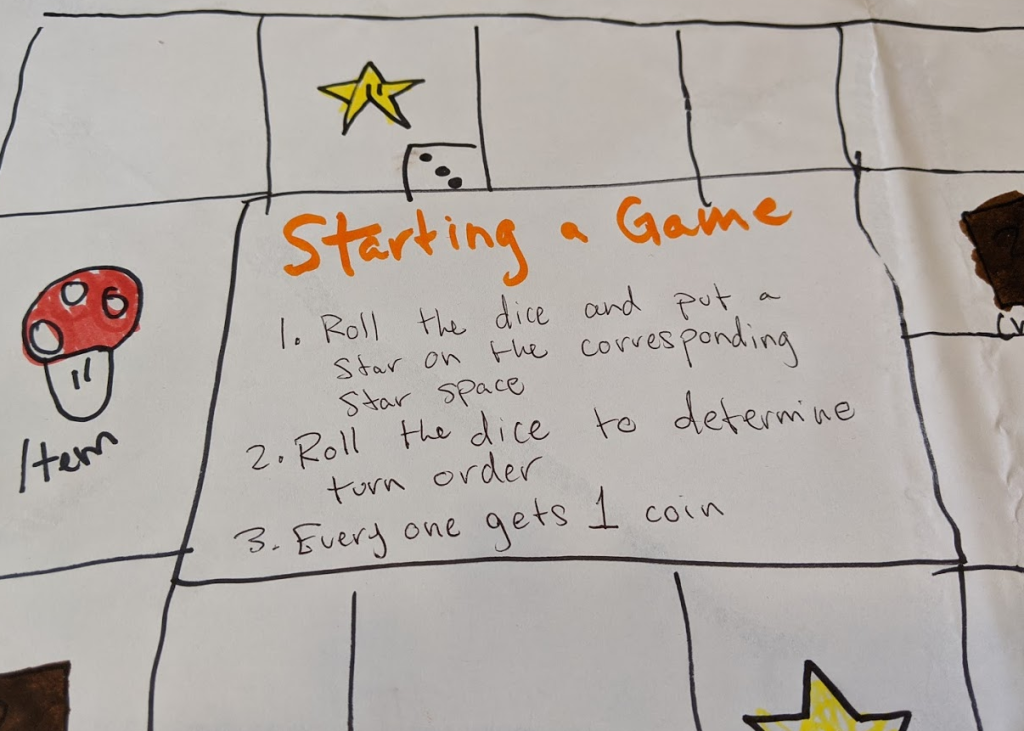 Starting a Game
1. Roll the dice and put a
star on the corresponding
star space
2. Roll the dice to determine
turn order
3. Every one gets 1 coin
Item